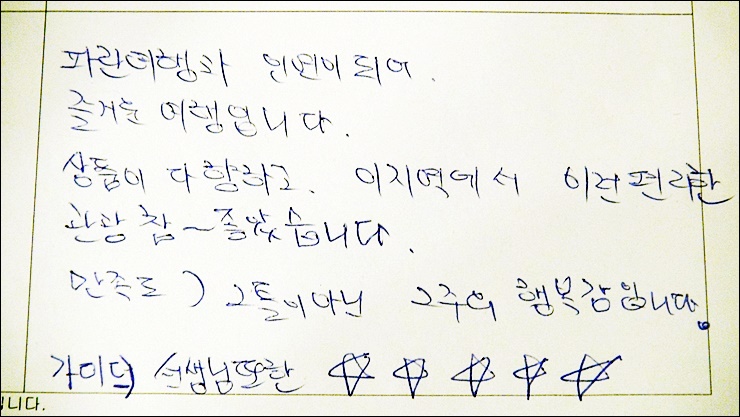 파란여행과 인연이 되어.
즐거운 여행입니다.
상품이 다양하고. 이지역에서 이런편리한
관광 참~좋았습니다.
만족도) 그틀이아닌 그주의 행복감입니다.
가이더 선생님또한 ☆ ☆ ☆ ☆ ☆
니다.